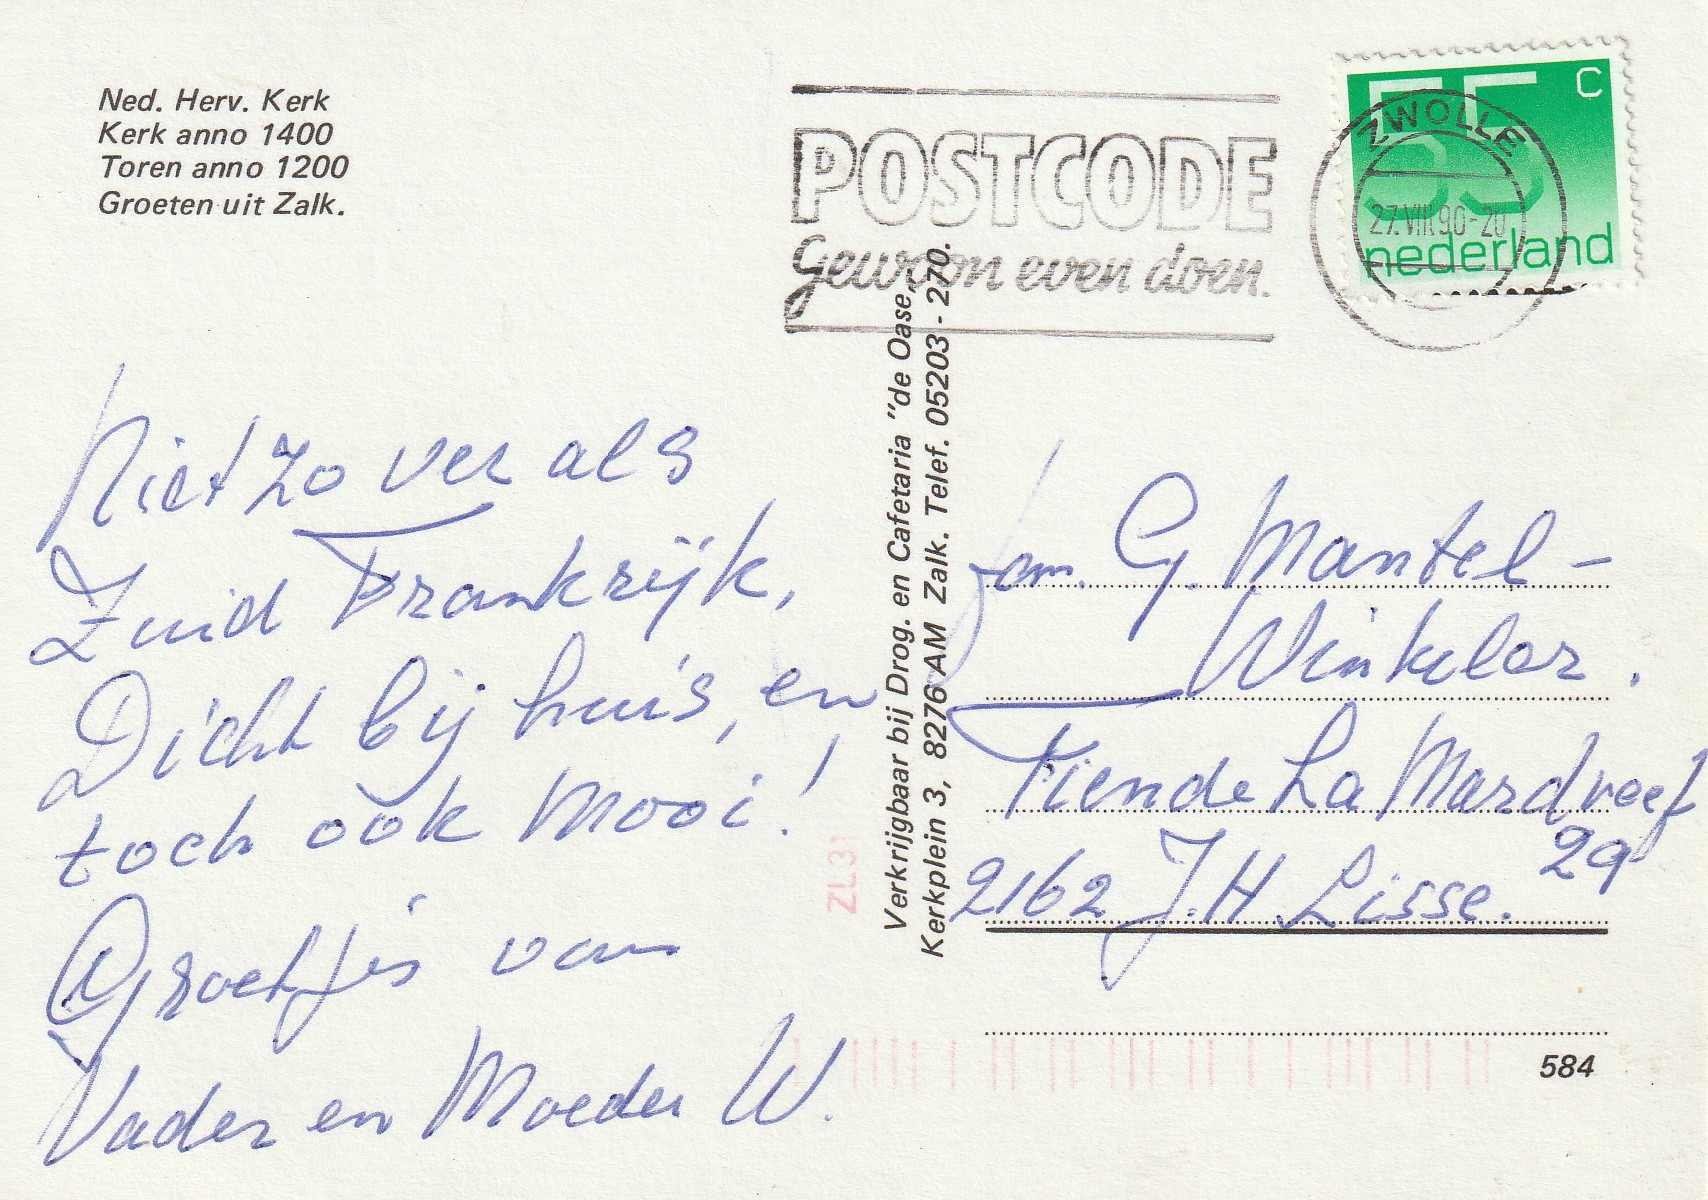 Ned. Herv. Kerk
Kerk anno 1400
Toren anno 1200
Groeten uit Zalk.
POSTCODE
Gewoon even doen.
ZWOLLE
27.VIII.90-20
55 c
nederland
Niet zo ver als
Zuid Frankrijk,
Dicht bij huis, en
toch ook mooi!
Groetjes van
Vader en Moeder W.
Verkrijgbaar bij Drog. en Cafetaria "de Oase,
Kerkplein 3, 8276 AM Zalk. Telef. 05203 - 270.
ZL31
Fam. G. Mantel -
Winkelar.
Fiende La Mardreef
29
2162 J.H Lisse.
584